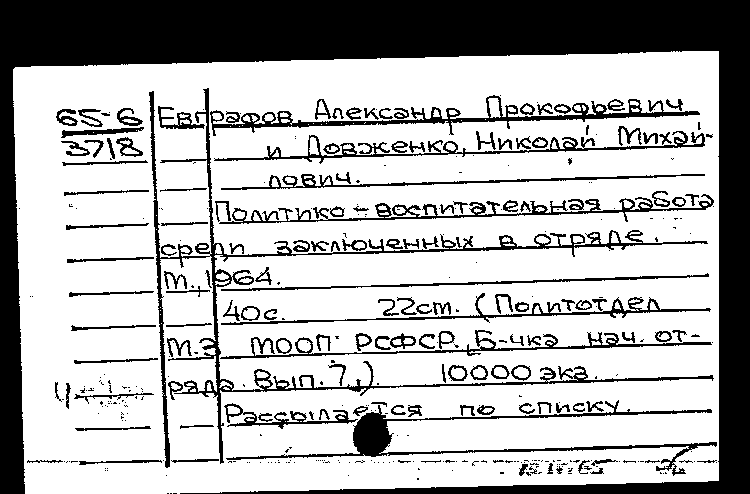 65-6 Евграфов, Александр Прокофьевич
3718 и Довженко, Николай Михай-
лович.
Политико-воспитательная работа
среди заключенных в отряде.
М., 1964.
40с. 22cm. (Политотдел
М.З МООП РСФСР. Б-чка нач. от-
ряда. Вып. 7,). 10000 экз.
Рассылается по списку.